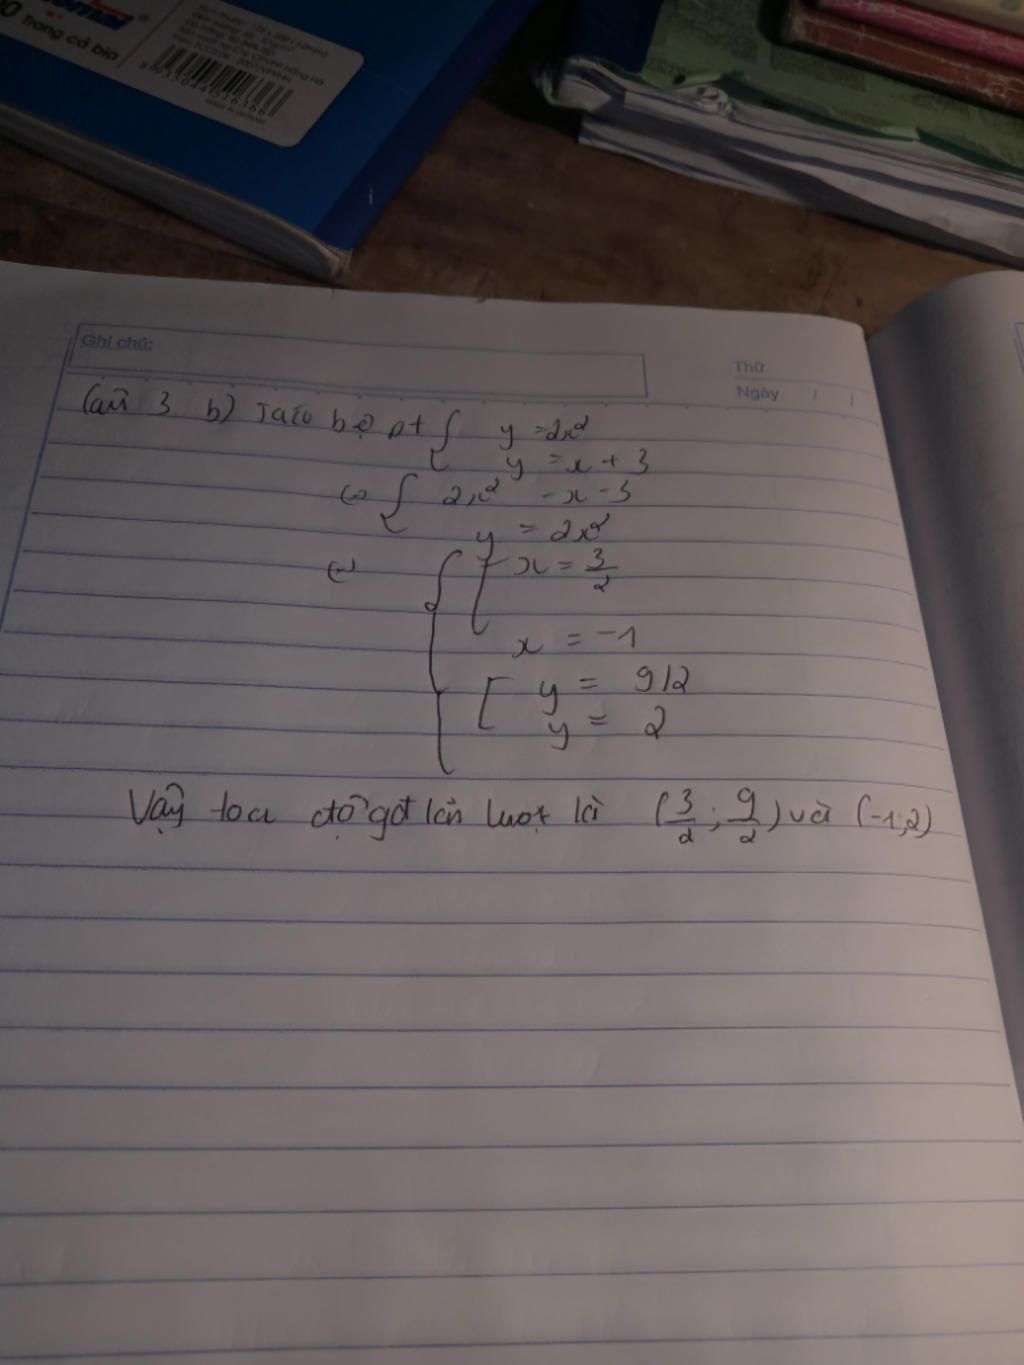 Trang cá bìa
8935304416366
Ghi chú:
Thứ
Ngày / /
Câu 3 b) Ta có hệ pt { y = 2x²
y = x + 3
⇔ { 2x² - x - 3
y = 2x²
⇔ { [ x = 3/2
x = -1
[ y = 9/2
y = 2
Vậy toa độ gđ lần lượt là (3/2 ; 9/2) và (-1;2)